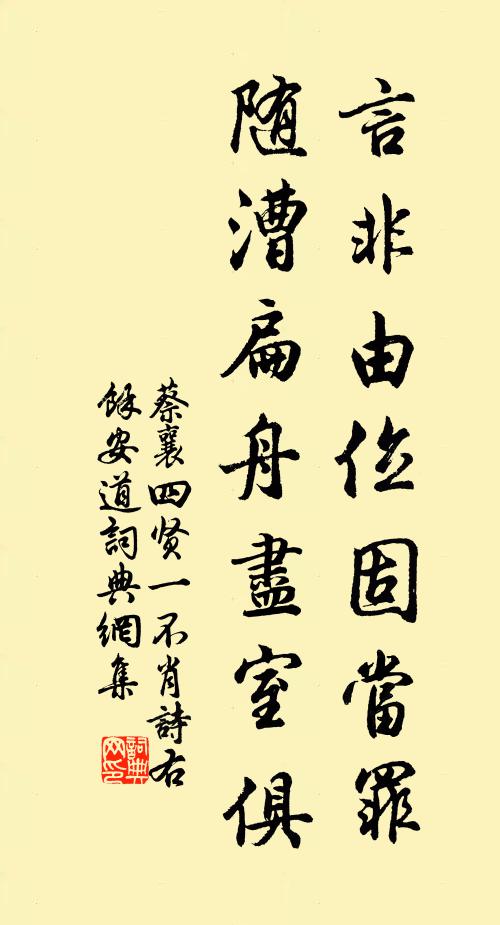 言非由位固當罪
随漕扁舟盡室俱
蔡襄四贤一不肖詩右
餘安道詞典網集
詞典网印